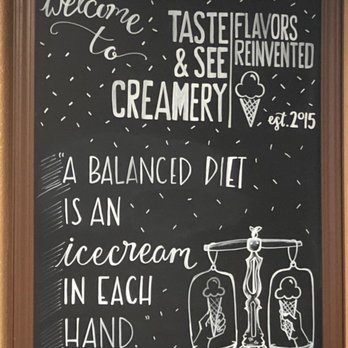 Welcome
to
TASTE
& SEE
CREAMERY
FLAVORS
REINVENTED
est. 2015
"A BALANCED DIET
IS AN
icecream
IN EACH
HAND."